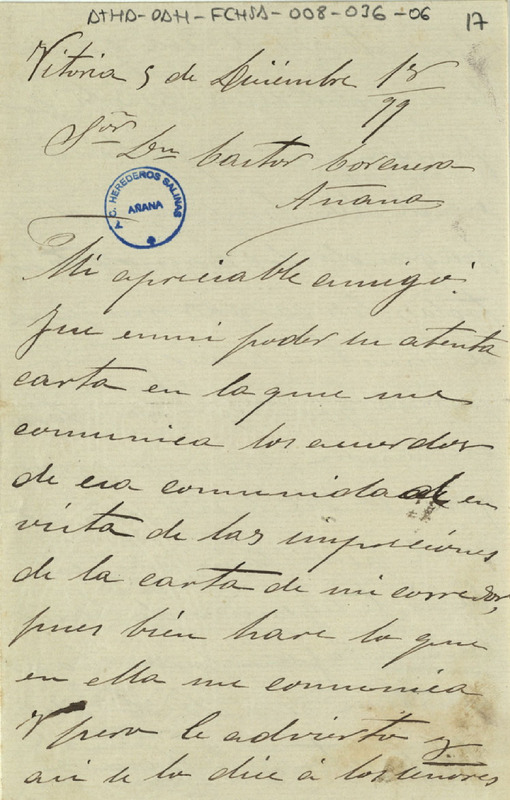 ATHA-DAH-FCHSA-008-036-06
17
Vitoria 5 de Diciembre 18/99
Sor Dn Castor
Añana
T. C. HEREDEROS SALINAS
AÑANA
Mi apreciable amigo:
Fue en mi poder su atenta
carta en la que me
comunica los acuerdos
de esa comunidad en
vista de las imposiciones
de la carta de mi corredor,
pues bién hare lo que
en ella me comunica
Y pero le advierto y
asi se lo dice á los señores